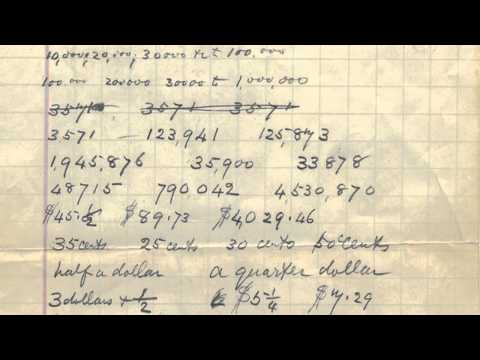 10,000 20,000, 30000 to 100,000
100.000 200000 30000 to 1,000,000
3571 3571 3571
3571 123,941 125,873
1,945,876 35,900 33878
48715 790042 4,530,870
$45.½ $89.73 $4,029.46
35 cents 25 cents 30 cents 50 cents
half a dollar a quarter dollar
3 dollars + ½ $5 ¼ $7.29